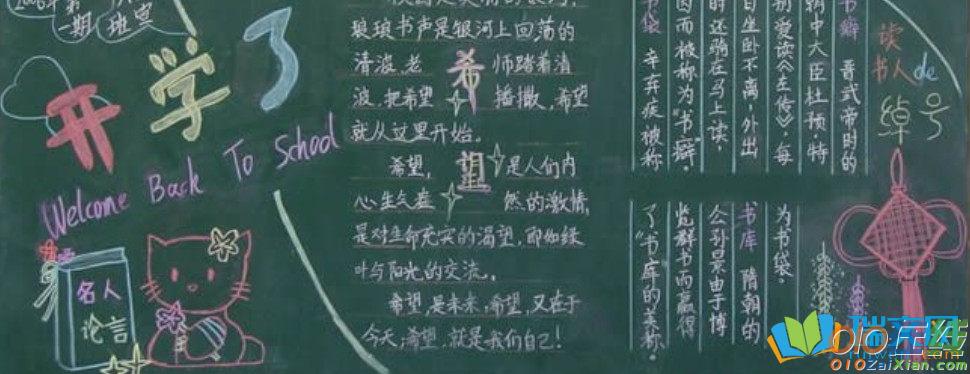 一期 班宣
开学了
Welcome Back To School
名人
论言
琅琅书声是银河上回荡的
清波,老 师踏着清
波,把希望 播撒,希望
就从这里开始。
希望
希望, 是人们内
心生气 然的激情,
是对生命充实的渴望,即如绿
叶与阳光的交流。
希望,是未来,希望,又在于
今天,希望,就是我们自己!
读
书人de
绰号
书癖 晋武帝时的
朝中大臣杜预特
别爱读《左传》,每
日坐卧不离,外出
时还驮在马上读,
因而被称为“书癖”。
书袋 辛弃疾被称
为书袋。
书库 隋朝的
公孙景由于博
览群书而赢得
了“书库”的美称。
瑞文网
010在线
010ZaiXian.com